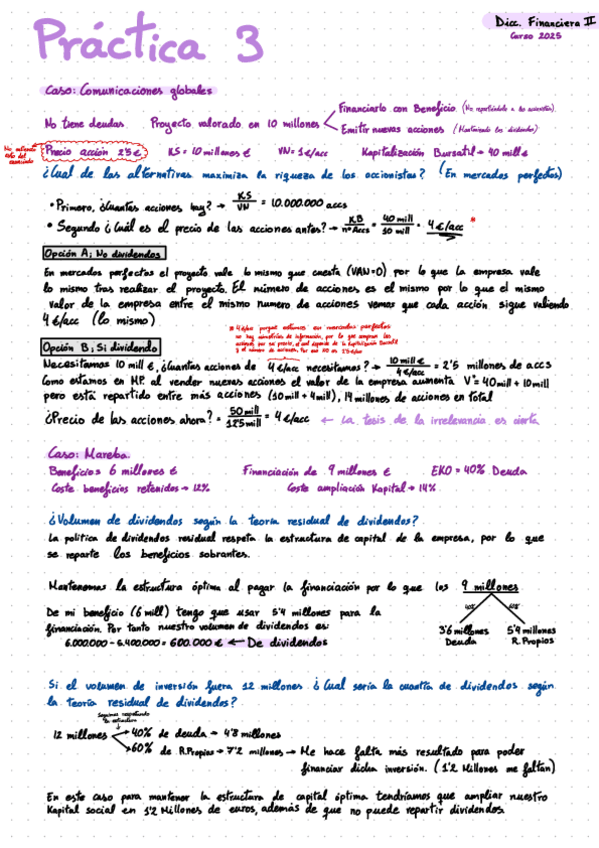 Dicc. Financiera II
Curso 2025
Práctica 3
Caso: Comunicaciones globales
No tiene deudas Proyecto valorado en 10 millones
Financiarlo con Beneficio (No repartiéndolo a los accionistas)
Emitir nuevas acciones (Manteniendo los dividendos)
Precio acción 2'5€ KS = 10 millones € VN = 1€/acc Kapitalización Bursatil → 40 mill €
¿Cual de las alternativas maximiza la riqueza de los accionistas? (En mercados perfectos)
• Primero, ¿Cuantas acciones hay? → KS/VN = 10.000.000 accs
• Segundo ¿Cuál es el precio de las acciones antes? → KB/nºAccs = 40 mill/10 mill = 4 €/acc *
Opción A; No dividendos
En mercados perfectos el proyecto vale lo mismo que cuesta (VAN=0) por lo que la empresa vale
lo mismo tras realizar el proyecto. El número de acciones es el mismo por lo que el mismo
valor de la empresa entre el mismo numero de acciones vemos que cada acción sigue valiendo
4 €/acc (lo mismo)
* 4€/acc porque estamos en mercados perfectos
Opción B; Si dividendo
Necesitamos 10 mill €, ¿Cuántas acciones de 4€/acc necesitamos? → 10 mill €/4 €/acc = 2'5 millones de accs
Como estamos en M.P. al vender nuevas acciones el valor de la empresa aumenta V = 40 mill + 10 mill
pero está repartido entre más acciones (10 mill + 4 mill), 14 millones de acciones en total
¿Precio de las acciones ahora? = 50 mill/12'5 mill = 4 €/acc ← La tesis de la irrelevancia es cierta
Caso: Mareba.
Beneficio = 6 millones € Financiación de 9 millones € EKO = 40% Deuda
Coste beneficios retenidos → 12% Coste ampliación Kapital → 14%
¿Volumen de dividendos según la teoría residual de dividendos?
La politica de dividendos residual respeta la estructura de capital de la empresa, por lo que
se reparte los beneficios sobrantes.
Mantenemos la estructura óptima al pagar la financiación por lo que los 9 millones
De mi beneficio (6 mill) tengo que usar 5'4 millones para la
financiación. Por tanto nuestro volumen de dividendos es:
6.000.000 - 5.400.000 = 600.000 € ← De dividendos
40% 60%
3'6 millones 5'4 millones
Deuda R. Propios
Si el volumen de inversión fuera 12 millones ¿Cual sería la cuantía de dividendos según
la teoría residual de dividendos?
Seguimos respetando
la estructura
12 millones
40% de deuda → 4'8 millones
60% de R.Propios → 7'2 millones → Me hace falta más resultado para poder
financiar dicha inversión. (1'2 Millones me faltan)
En este caso para mantener la estructura de capital óptima tendríamos que ampliar nuestro
Kapital social en 1'2 Millones de euros, además de que no puede repartir dividendos.